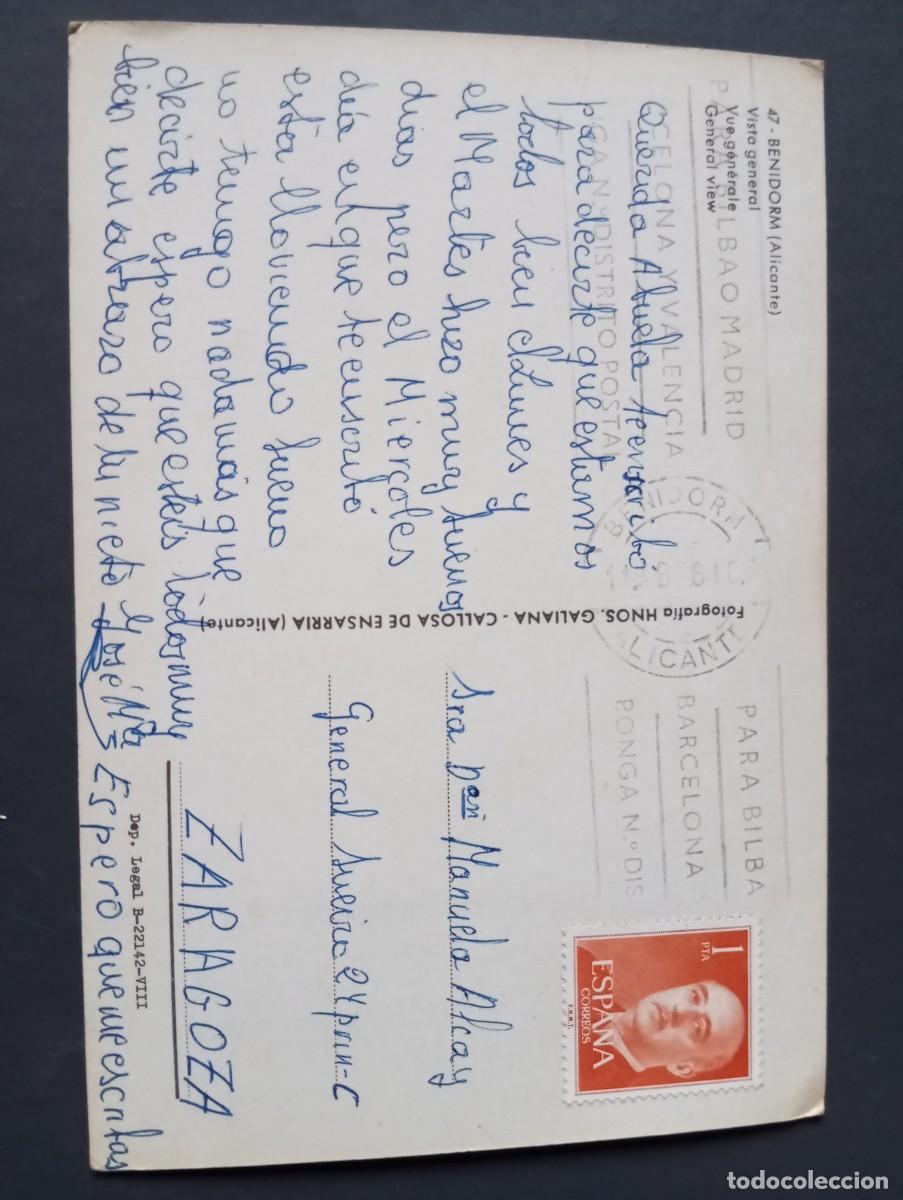 47 - BENIDORM (Alicante)
Vista general
Vue générale
General view
PARA BILBAO MADRID
BARCELONA Y VALENCIA
PONGA N.º DISTRITO POSTAL
BENIDORM
ALICANTE
PARA BILBA
BARCELONA
PONGA N.º DIS
Querida Abuela te escribo
para decirte que estamos
todos bien el Lunes y
el Martes hizo muy buenos
dias pero el Miercoles
día en que te escribo
esta lloviendo bueno
no tengo nada más que
decirte espero que esteis todos muy
bien un abrazo de tu nieto José Mª
Espero que me escribas
Fotografía HNOS. GALIANA - CALLOSA DE ENSARRIA (Alicante)
1
PTA
ESPAÑA
CORREOS
F.N.M.T.
Sra Manuela Alcay
General Sueiro 24 prin-C
ZARAGOZA
Dep. Legal B-22142-VIII
todocoleccion